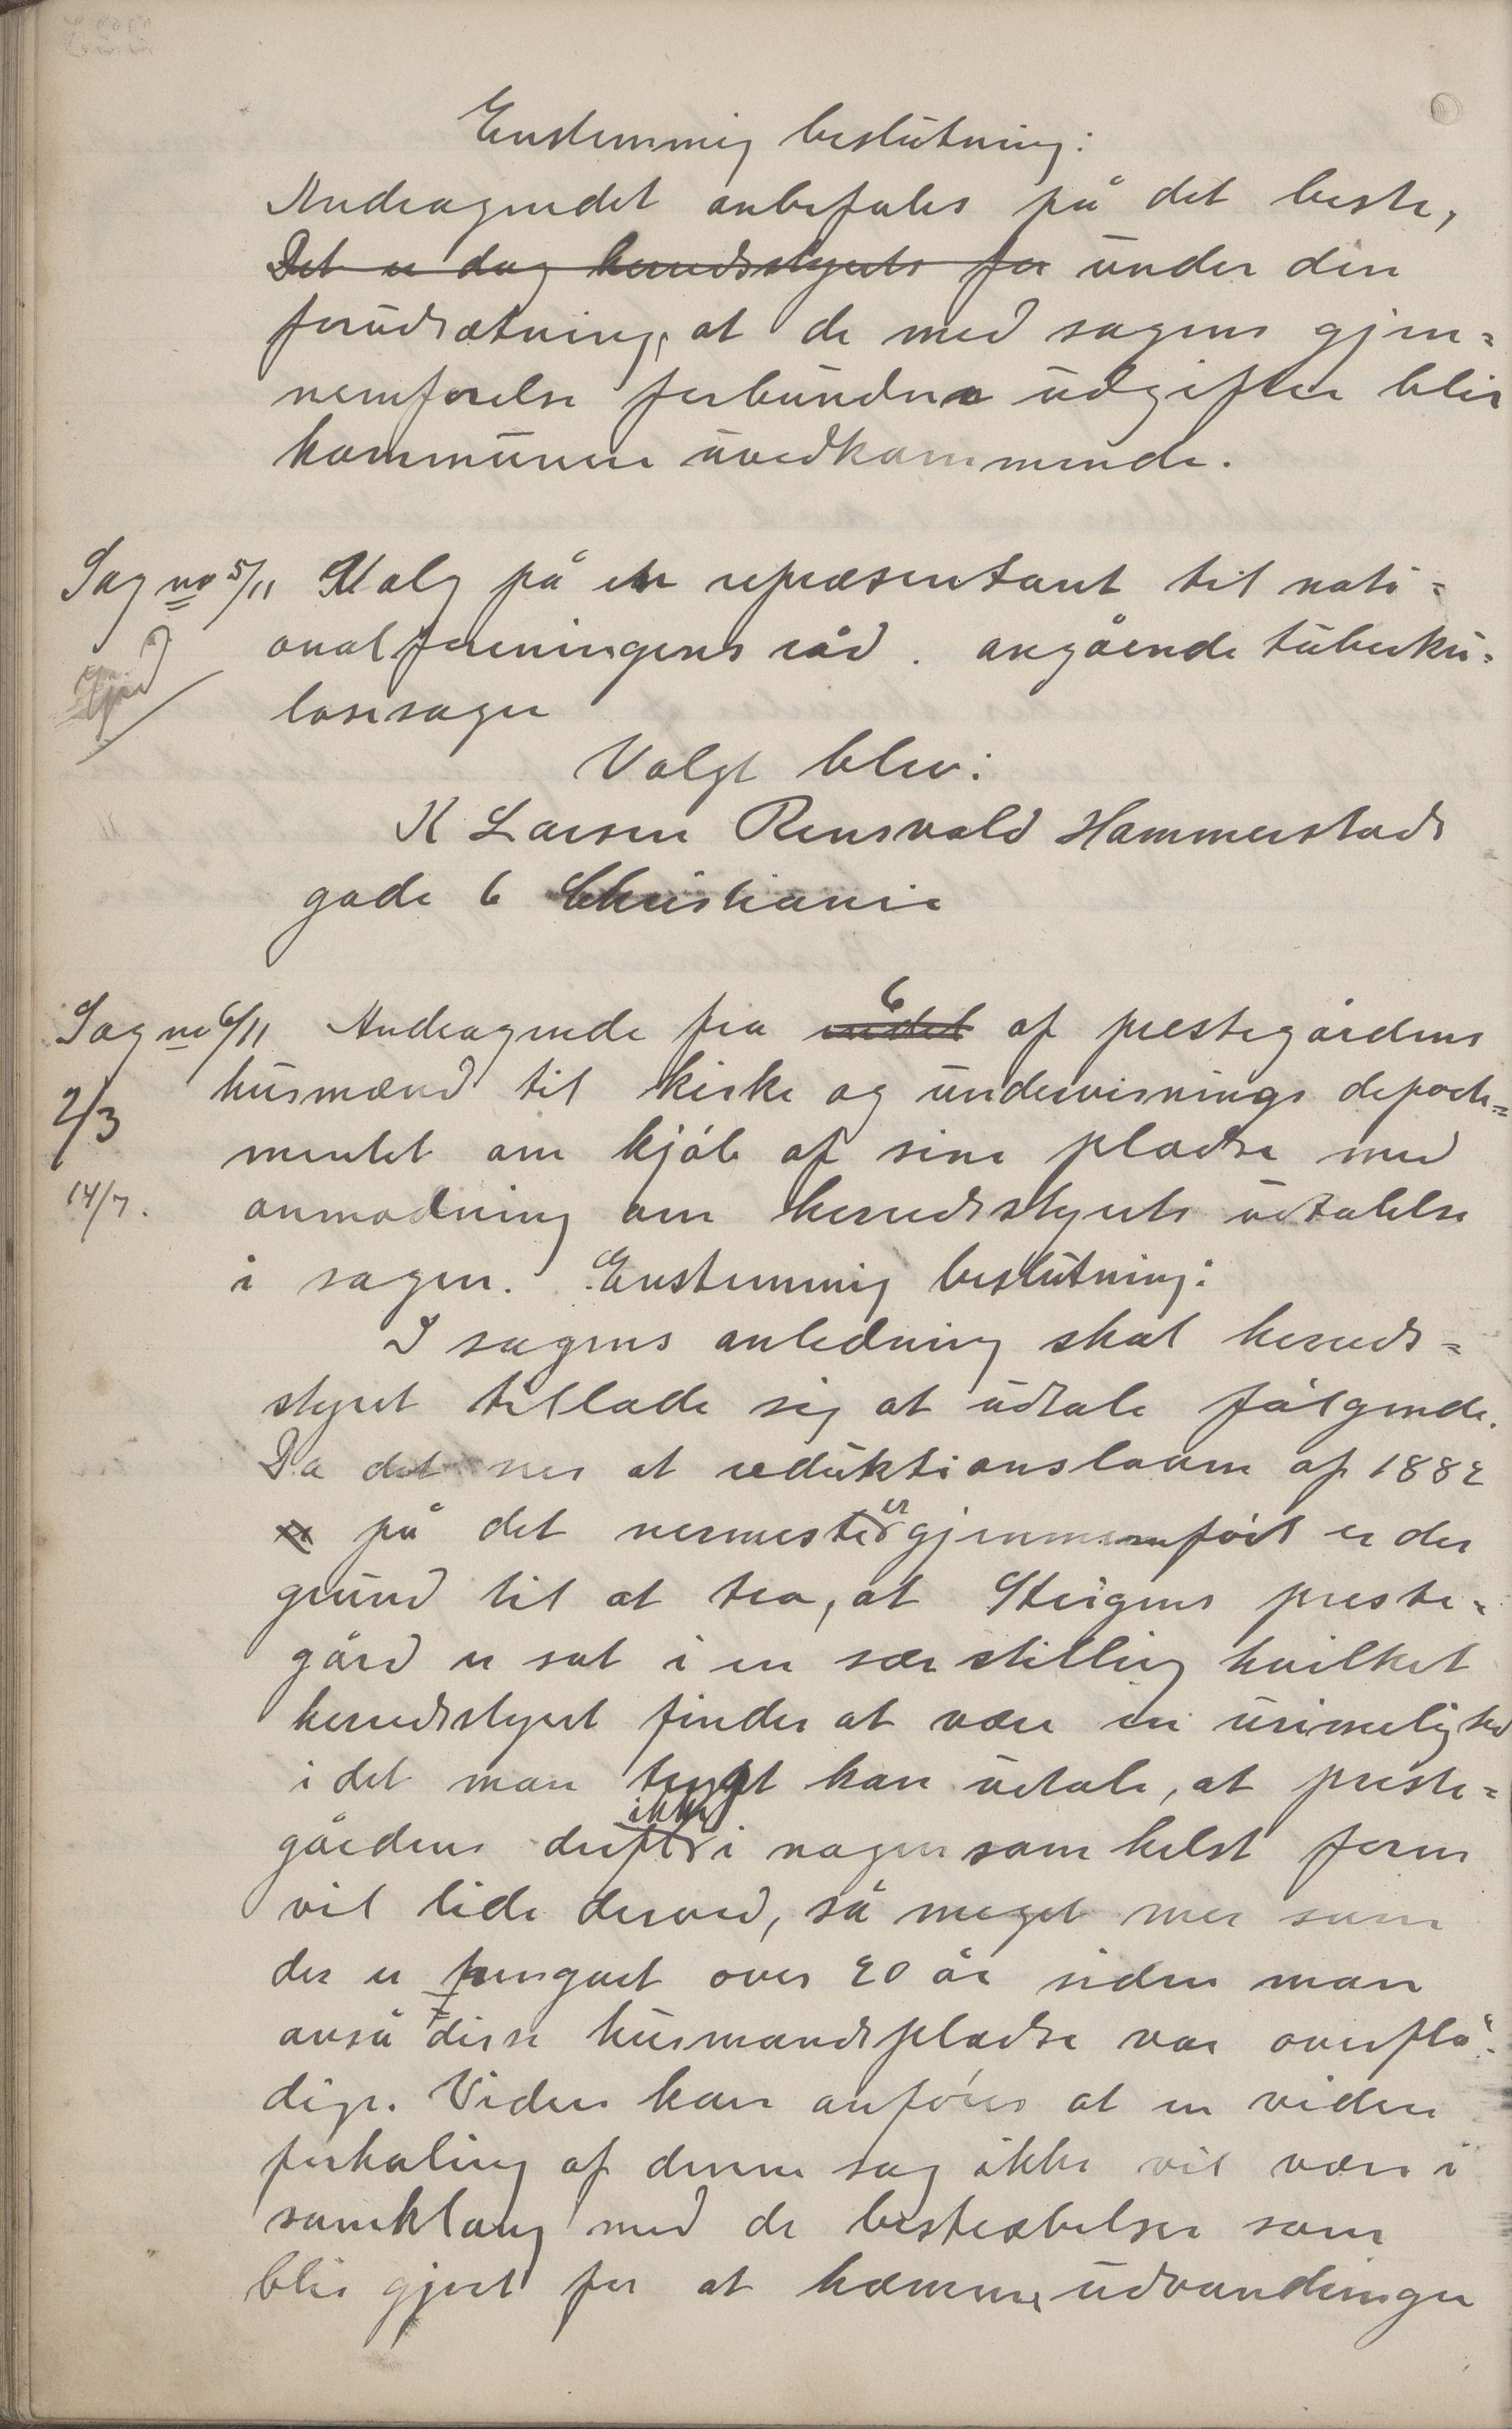 Enstemmig beslutning:
Andragendet anbefales på det beste,
Det er dog herredsstyrets for under den
forudsætning, at de med sagens gjen=
nemførelse forbundne udgifter blir
kommunen uvedkommende.
Sag no 5/11 Valg på en repræsentant til nati=
onalforeningens råd. angående tuberku=
losesagen
Valgt blev:
K Larsen Rensvald Hammerstads
gade 6 Christiania
Sag no 6/11 Andragende fra 6 af prestegårdens
2/3 husmænd til kirke og undervisnings departe=
mentet om kjøb af sine pladse med
14/7. anmodning om herredsstyrets udtalelse
i sagen. Enstemmig beslutning:
I sagens anledning skal herreds=
styret tillade sig at udtale følgende.
Da det sees at reduktionsloven af 1882
på det nermeste er gjennemført er der
grund til at tro, at Steigens preste=
gård er sat i en særstilling hvilket
herredsstyret finder at være en urimelighed
i det man trygt kan udtale, at preste=
gårdens drift ikke i nogensomhelst form
vil lide derved, så meget mer som
der er hengaet over 20 år siden man
anså disse husmandspladse var overflø=
dige. Videre kan anføres at en videre
forhaling af denne sag ikke vil være i
samklang med de bestræbelser som
blir gjort for at hæmme udvandringen